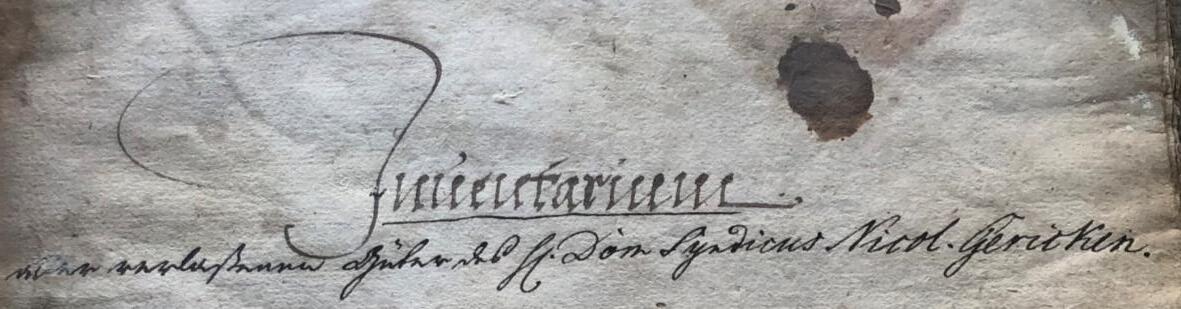 Inventarium
aller verlaßenen Güter des H. Dom Syndicus Nicol. Gericken.